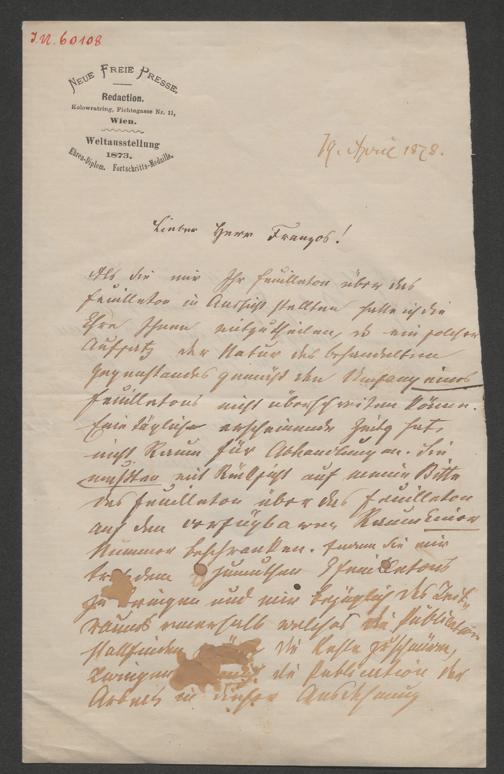 I.N. 60108
NEUE FREIE PRESSE.
Redaction.
Kolowratring, Fichtegasse Nr. 11,
Wien.
Weltausstellung
1873.
Ehren-Diplom. Fortschritts-Medaille.
19. April 1878.
Lieber Herr Franzos!
Als Sie mir Ihr Feuilleton über das
Feuilleton in Aussicht stellten hatte ich die
Ehre Ihnen mitzutheilen, daß ein solcher
Aufsatz der Natur des behandelten
Gegenstandes gemäß den Umfang eines
Feuilletons nicht überschreiten könne.
Eine täglich erscheinende Zeitg hat
nicht Raum für Abhandlungen. Sie
mußten mit Rücksicht auf meine Bitte
das Feuilleton über das Feuilleton
auf den verfügbaren Raum einer
Nummer beschränken. Wenn Sie mir
trotzdem zumuthen Feuilletons
zu bringen und mir bezüglich des Zeit-
raums innerhalb welches die Publication
stattfinden die
zwingen die Publication der
Arbeit in dieser Ausdehnung